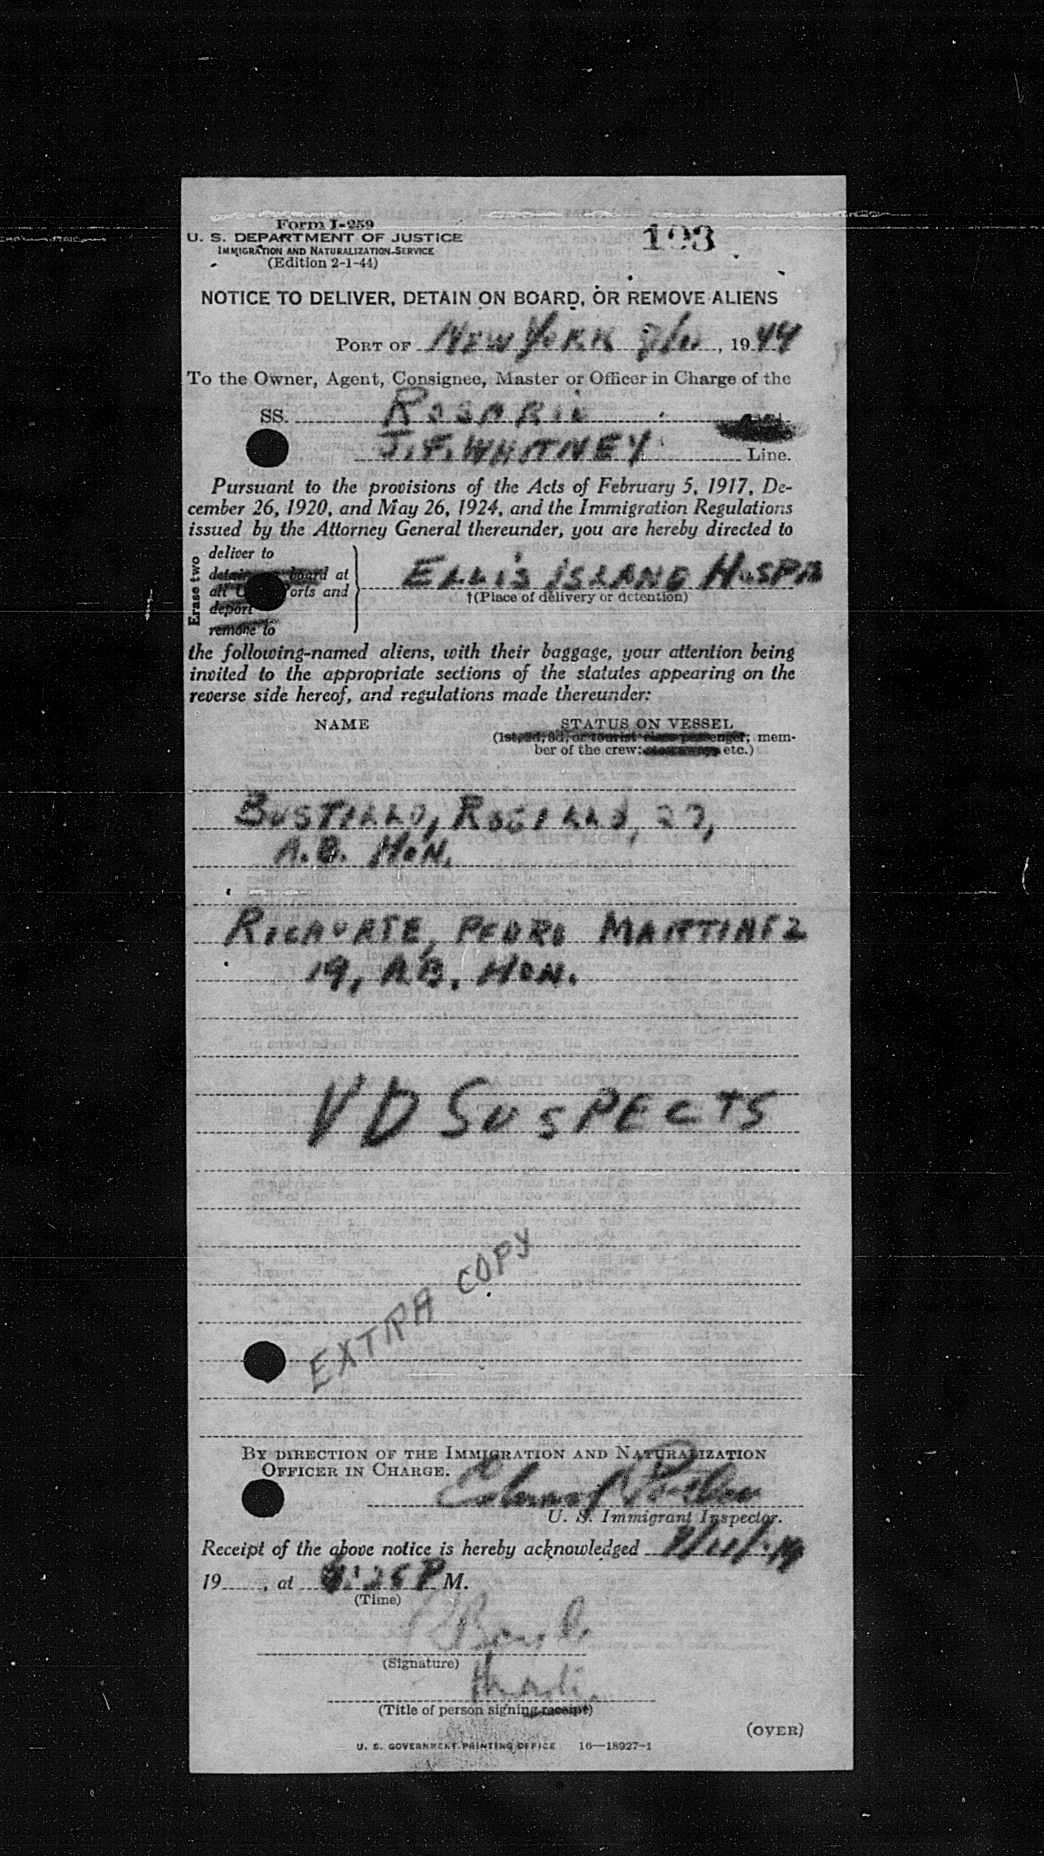 Form I-259
U. S. DEPARTMENT OF JUSTICE
IMMIGRATION AND NATURALIZATION SERVICE
(Edition 2-1-44)
193
NOTICE TO DELIVER, DETAIN ON BOARD, OR REMOVE ALIENS
PORT OF NEW YORK , 19 44
To the Owner, Agent, Consignee, Master or Officer in Charge of the
SS. ROSARIO
J.F. WHITNEY Line.
Pursuant to the provisions of the Acts of February 5, 1917, De-
cember 26, 1920, and May 26, 1924, and the Immigration Regulations
issued by the Attorney General thereunder, you are hereby directed to
Erase two
deliver to
detain board at
all U orts and
deport
remove to
ELLIS ISLAND HOSPA
†(Place of delivery or detention)
the following-named aliens, with their baggage, your attention being
invited to the appropriate sections of the statutes appearing on the
reverse side hereof, and regulations made thereunder:
NAME STATUS ON VESSEL
(1st, 2d, 3d, or tourist class passenger; mem-
ber of the crew; stowaway, etc.)
BUSTILLO, ROGILLO, 27,
A.B. HON.
RICAURTE, PEDRO MARTINEZ
19, AB. HON.
VD SUSPECTS
EXTRA COPY
BY DIRECTION OF THE IMMIGRATION AND NATURALIZATION
OFFICER IN CHARGE.
U. S. Immigrant Inspector.
Receipt of the above notice is hereby acknowledged
19 , at P M.
(Time)
(Signature)
(Title of person signing receipt)
(OVER)
U. S. GOVERNMENT PRINTING OFFICE 16—18927-1